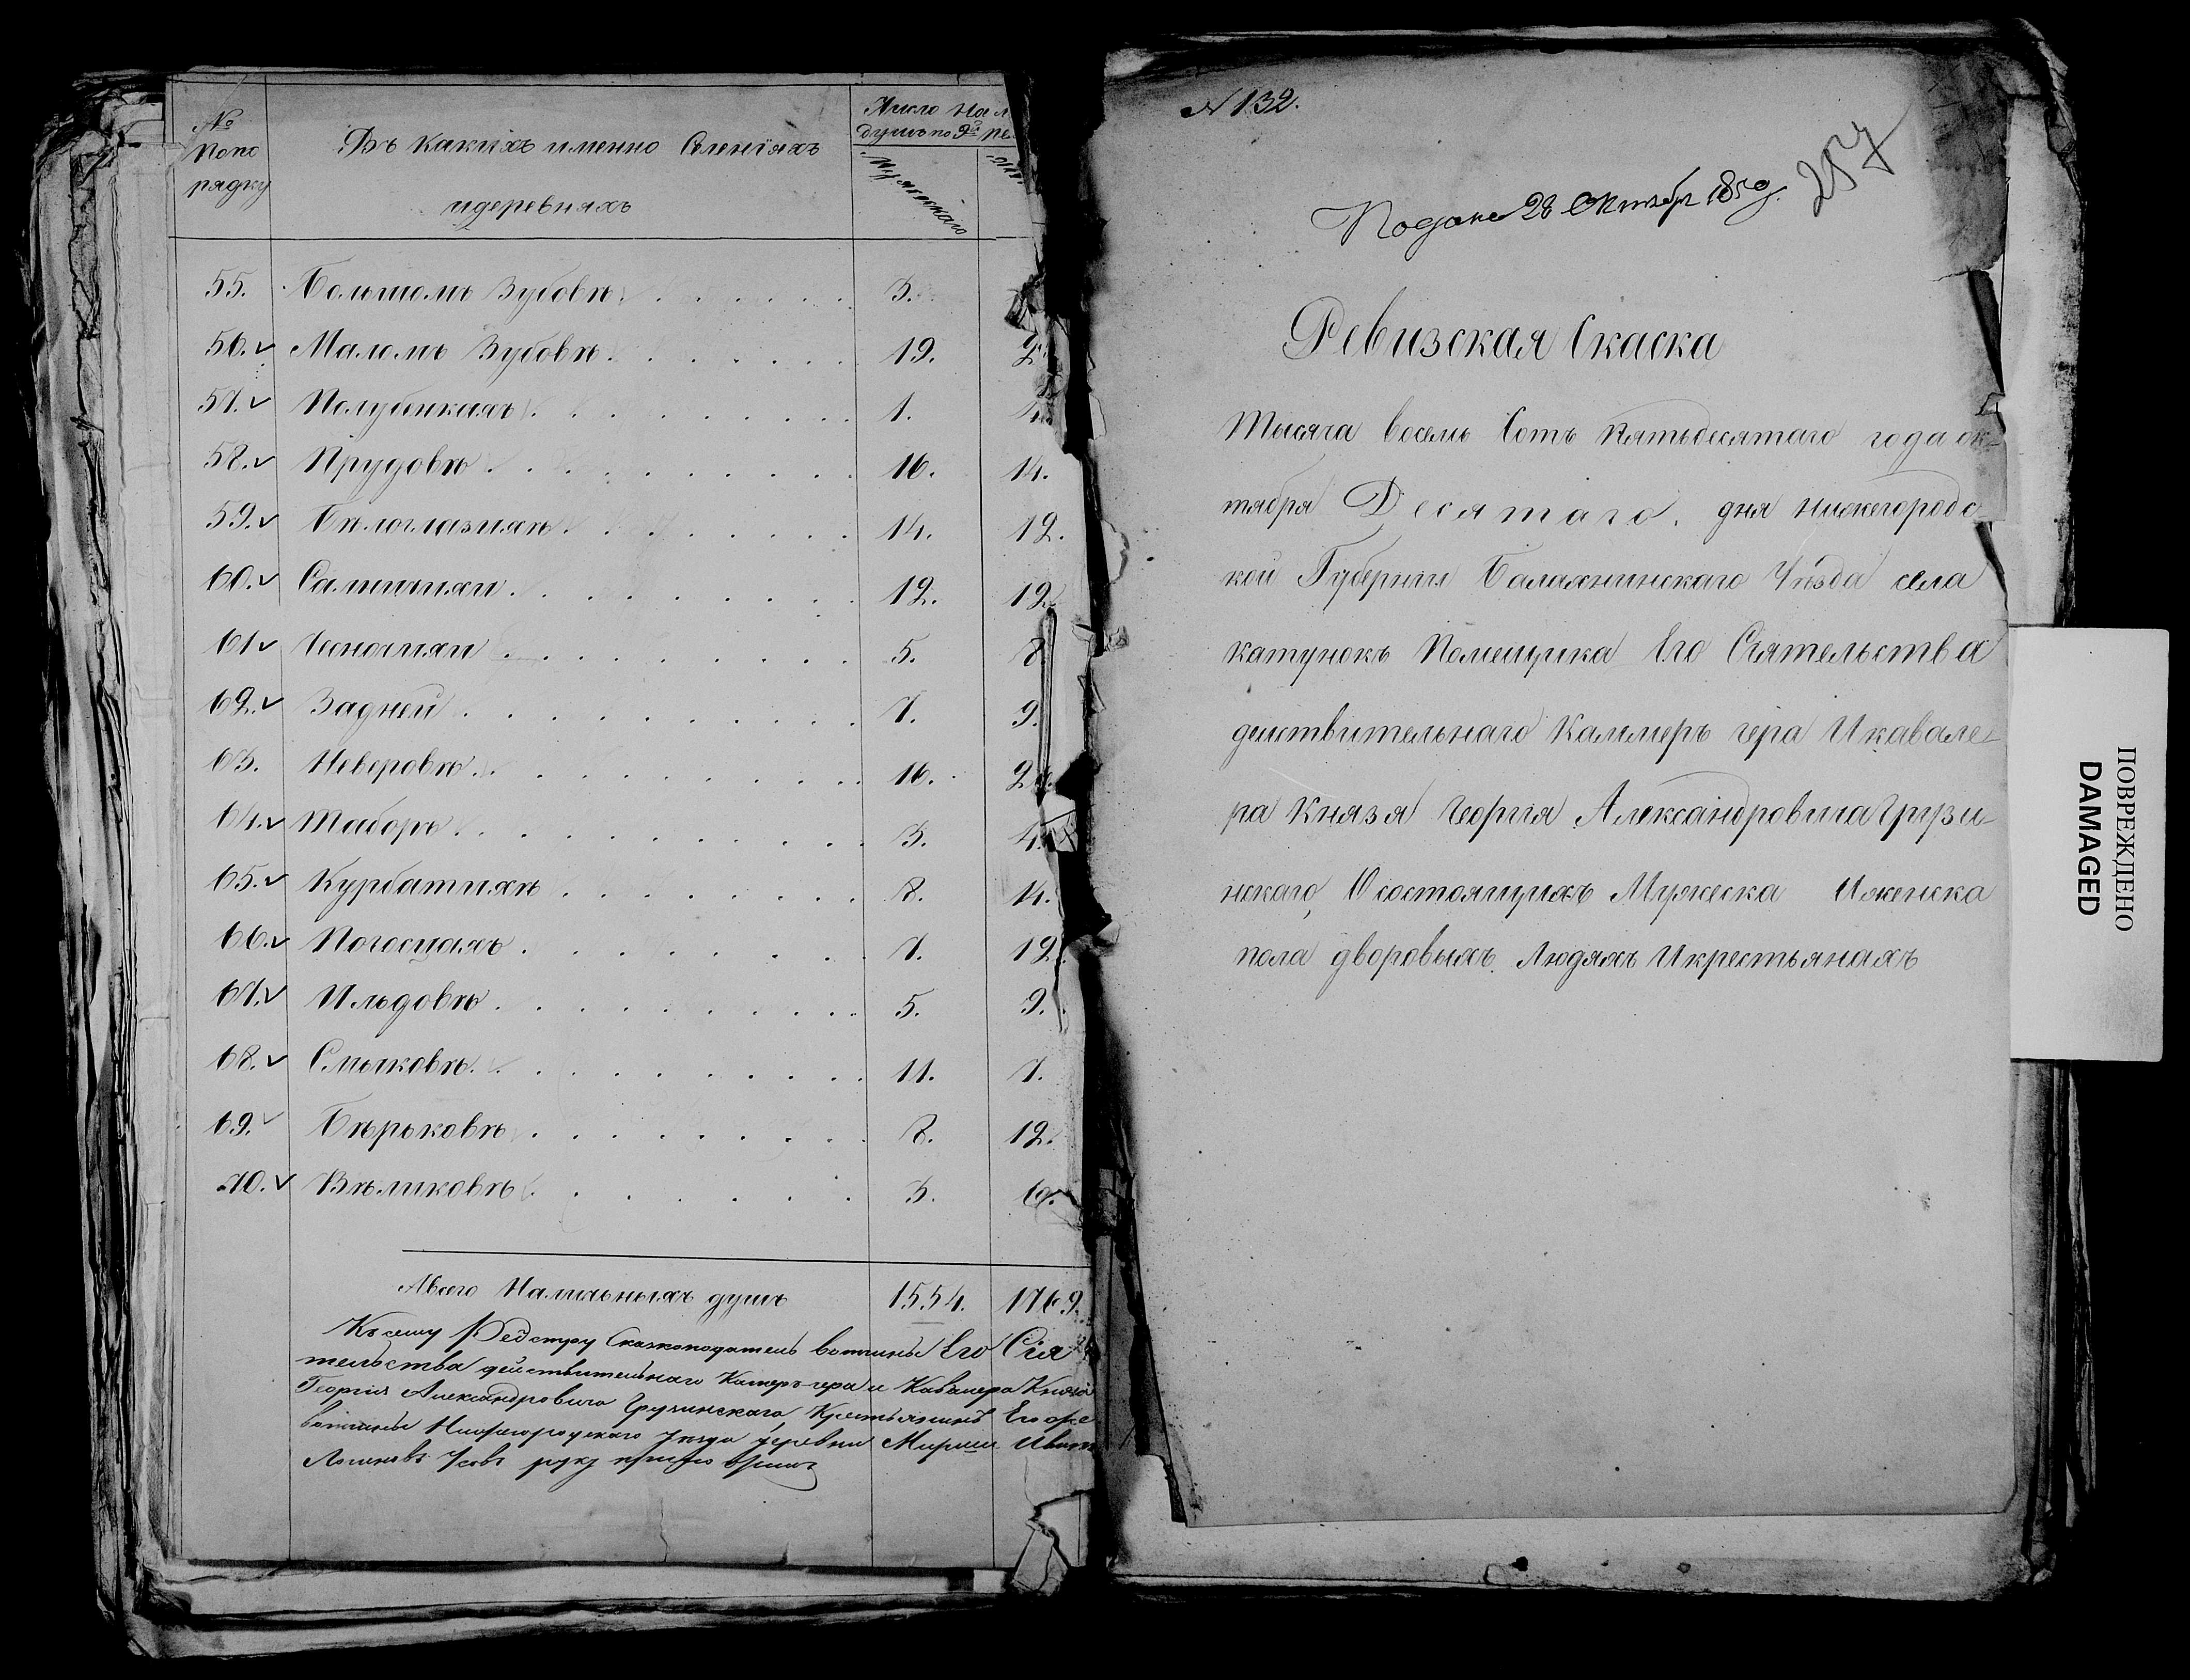 №
Попо
рядку
Въ какихъ именно Селенiяхъ
идеревняхъ
Число На
душъ по 9й
Мужескаго
55. Большомъ Зубовѣ 3.
56. Маломъ Зубовѣ 19.
57. Полубинкахъ 1.
58. Прудовѣ 16. 14.
59. Бѣлоглазихѣ 14. 12.
60. 12. 12.
61 Чесночихи 5. 8.
62. Задней 7. 9.
63. Неверовѣ 16.
64. Таборъ 3. 4.
65. Курбатихѣ 8. 14.
66. Погосцахъ 7. 12.
67. Ильдовѣ 5. 9.
68. Смычковѣ 11. 7.
69. Бѣрьковѣ 8. 12.
70. Вѣликовѣ 3.
Авсего Наличныхъ душъ 1554. 1769.
Къ сему Реэстру Сказкоподатель вотчины Его Сія
тельства действительнаго Камеръ-гера и Кавалера Князя
Георгія Александровича Грузинскаго, Крестьянинъ Егоже
вотчины Нижегородскаго уезда деревни Иван
Логиновъ Усовъ руку приложилъ
N 132.
257
Подана 28 Октября 1850.
Ревизская Скаска
Тысяча восемь Сотъ пятьдесятаго года ок-
тября Десятаго. дня нижегородс
кой Губернии Балахнинскаго Уѣзда села
катунокъ Помещика Его Сіятельства
действительнаго Каммеръ гера Икавале-
ра Князя Георгія Александровича Грузи-
нскаго, Осостоящихъ Мужеска Иженска
пола дворовыхъ Людяхъ Икрестьянахъ
ПОВРЕЖДЕНО
DAMAGED